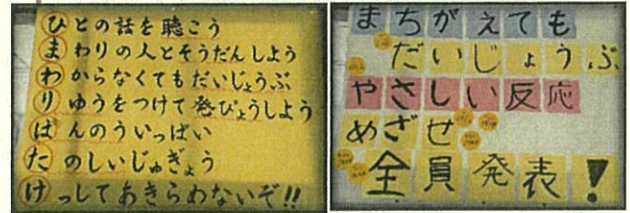 ひとの話を聴こう
まわりの人とそうだんしよう
わからなくてもだいじょうぶ
りゆうをつけて発ぴょうしよう
ばんのういっぱい
たのしいじゅぎょう
けっしてあきらめないぞ!!
まちがえても
だいじょうぶ
やさしい反応
めざせ
全員発表!